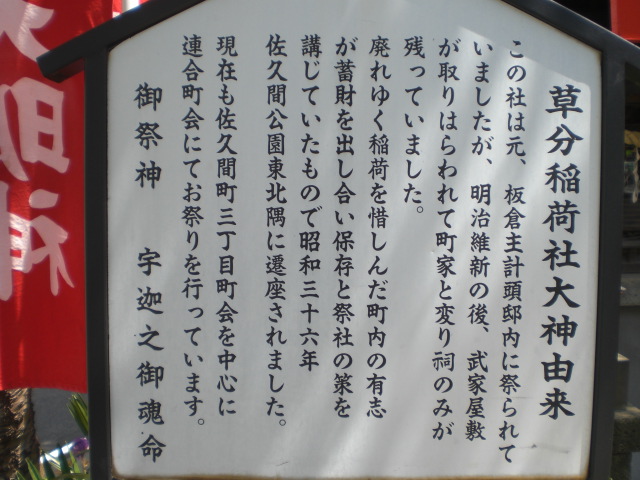 草分稲荷社大神由来
この社は元、板倉主計頭邸内に祭られて
いましたが、明治維新の後、武家屋敷
が取りはらわれて町家と変り祠のみが
残っていました。
廃れゆく稲荷を惜しんだ町内の有志
が蓄財を出し合い保存と祭社の策を
講じていたもので昭和三十六年
佐久間公園東北隅に遷座されました。
現在も佐久間町三丁目町会を中心に
連合町会にてお祭りを行っています。
御祭神 宇迦之御魂命
大明神